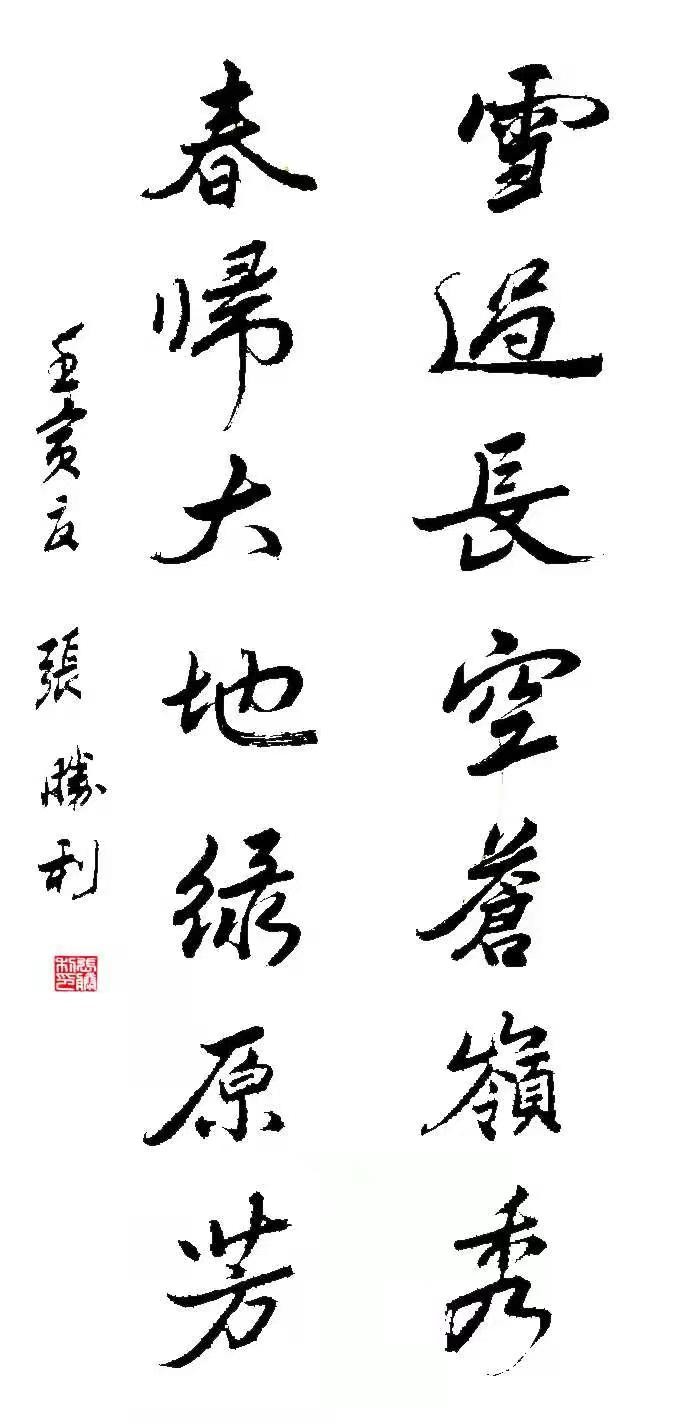 雪過長空蒼嶺秀
春歸大地綠原芳
壬寅夏 張勝利
張勝利印